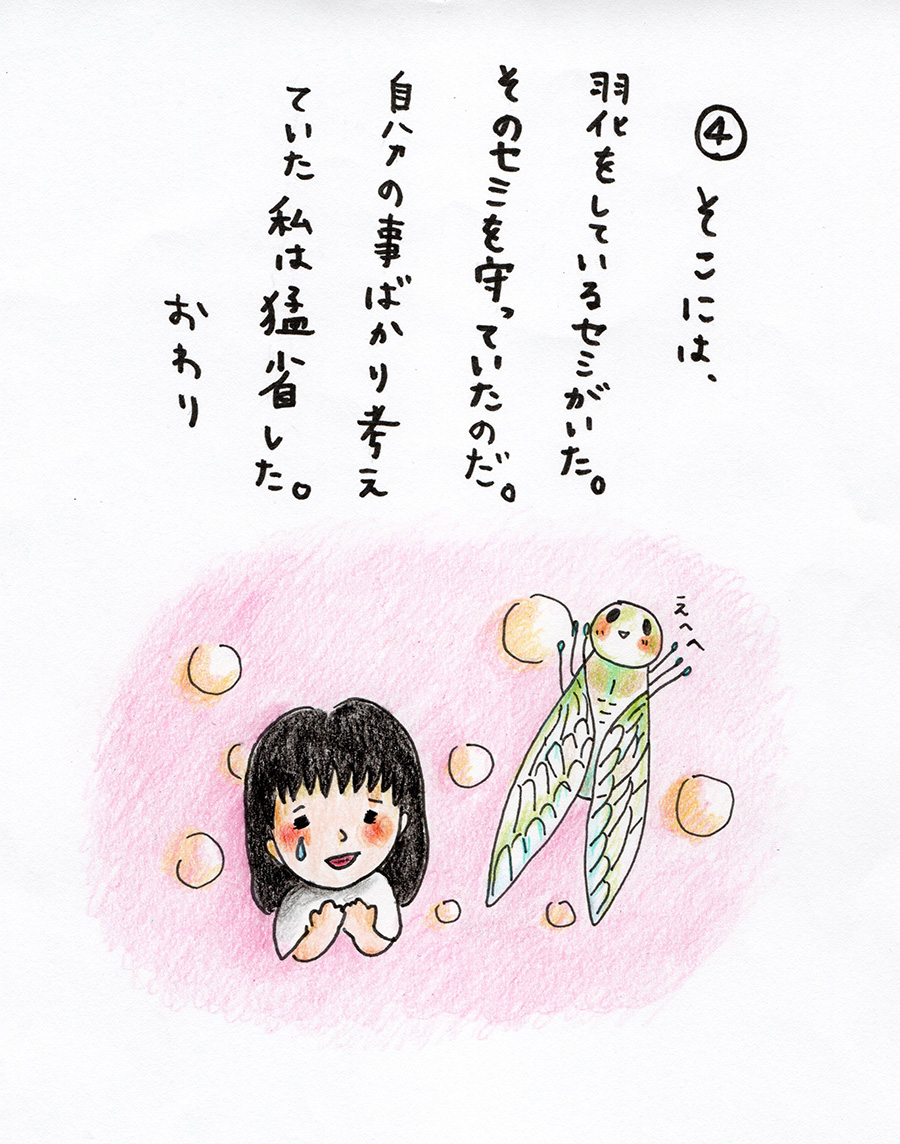 ④ そこには、
羽化をしているセミがいた。
そのセミを守っていたのだ。
自分の事ばかり考え
ていた私は猛省した。
おわり
えへへ